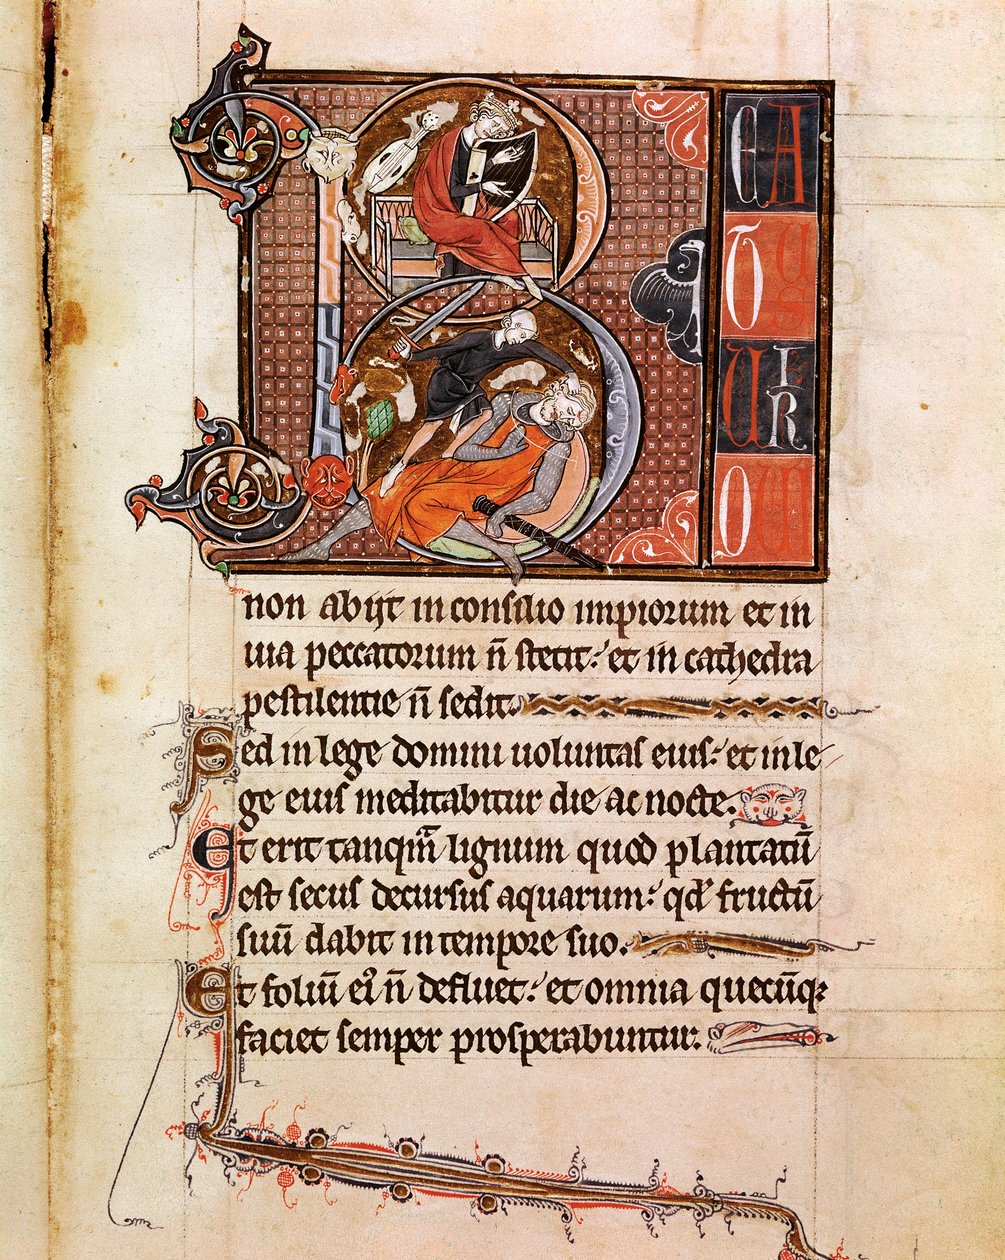 BEA
TUS
UIR
QUI
non abijt in consilio impiorum et in
uia peccatorum n̄ stetit: et in cathedra
pestilentie n̄ sedit.
Sed in lege domini uoluntas eius: et in le-
ge eius meditabitur die ac nocte.
Et erit tanqm̄ lignum quod plantatū
est secus decursus aquarum: qd̄ fructū
suū dabit in tempore suo.
Et foliū eiꝰ n̄ defluet: et omnia quecūqꝫ
faciet semper prosperabuntur.